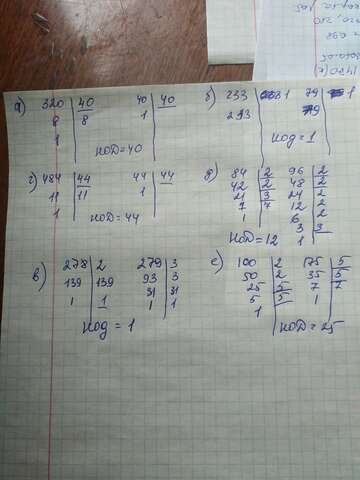 а) 320 | 40   40 | 40
8 | 8   1
1
НОД=40
б) 233 | 1   79 | 1
233   79
НОД=1
г) 484 | 44   44 | 44
11 | 11   1
1
НОД=44
д) 84 | 2   96 | 2
42 | 2   48 | 2
21 | 3   24 | 2
7 | 7   12 | 2
1   6 | 2
3 | 3
НОД=12   1
в) 278 | 2   279 | 3
139 | 139   93 | 3
1 | 1   31 | 31
1 | 1
НОД = 1
е) 100 | 2   175 | 5
50 | 2   35 | 5
25 | 5   7 | 7
5 | 5   1
1
НОД=25